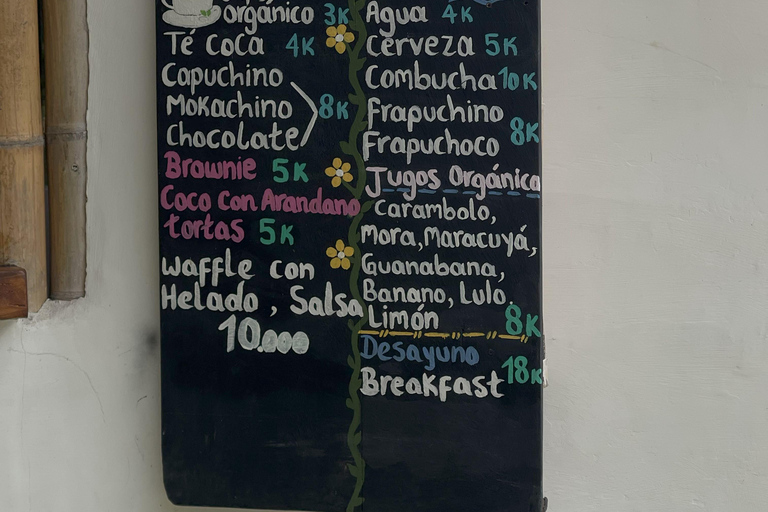 orgánico 3K
Té Coca 4K
Capuchino
Mokachino 8K
Chocolate
Brownie 5K
Coco Con Arandano
tortas 5K
Waffle con
Helado, Salsa
10.000
Agua 4K
Cerveza 5K
Combucha 10K
Frapuchino
8K
Frapuchoco
Jugos Orgánica
Carambolo,
Mora, Maracuyá,
Guanabana,
Banano, Lulo.
Limón 8K
Desayuno
Breakfast 18K